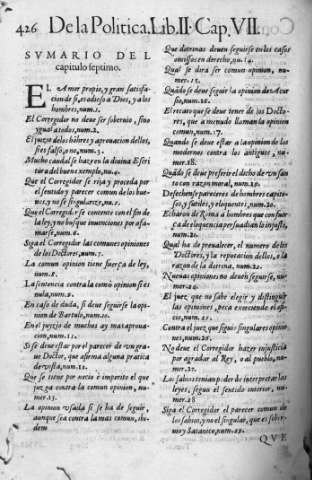 426 De la Politica. Lib. II. Cap. VII.
SVMARIO DEL
capitulo septimo.
EL Amor propio, y gran satisfa-
cion de si, es odioso a Dios, y a los
hombres, num. 1.
El Corregidor no deve ser sobervio, sino
ygual a todos, num. 2.
El juyzio de los hõbres y aprovacion dellos,
si es falso, o no, num. 3.
Mucho caudal se haze en la divina Escri
tura del buen exemplo, nu. 4.
Que el Corregidor se rija y proceda por
el sentido y parecer comun de los bue-
nos, y no se singularize, nu. 5.
Que el Corregidor se contente con el fin de
la ley, y no busque invenciones por afa-
marse, num. 6.
Siga el Corregidor las comunes opiniones
de los Doctores, num. 7.
La comun opinion tiene fuerça de ley,
num. 8.
La sentencia contra la comũ opinion es
nula, num. 9.
En caso de duda, si deve seguirse la opi-
nion de Bartulo, num. 10.
En el juyzio de muchos ay mas aprova-
cion, num. 11.
Si se deve estar por el parecer de un gra-
ve Doctor, que afirma alguna pratica
de vista, num. 12.
Que se tiene por necio è imperito el que
juzga contra la comun opinion, nu-
mer. 13.
La opinion usada si se ha de seguir,
aunque sea contra la mas comun, ibi-
dem
Que dotrinas deven seguirse en los casos
omissos en derecho, nu. 14.
Qual se dirà ser comun opinion, nu-
mer. 15.
Quãdo se deve seguir la opinion de Acur-
sio, num. 16.
El recato que se deve tener de los Docto-
res, que a menudo llaman la opinion
comun, num. 17.
Quando se deve estar a la opinion de los
modernos contra los antiguos, nu-
mer. 18.
Quãdo se deve preferir el dicho de un san-
to con razon moral, num. 19.
Desechense pareceres de hombres capcio-
sos y sutiles, y eloquentes, num. 20.
Echaron de Roma a hombres que con fuer-
ça de eloquencia persuadian lo injusto,
num. 21.
Qual ha de prevalecer, el numero de los
Doctores, y la reputacion dellos, o la
razon de la dotrina, num. 22.
Nuevas opiniones no deven seguirse, nu-
mer. 24.
El juez que no sabe elegir y distinguir
las opiniones, peca exerciendo el ofi-
cio, num. 25.
Contra el juez que seguio singulares opinio-
nes, num. 26.
No deve el Corregidor hazer injusticia
por agradar al Rey, o al pueblo, nu-
mer. 27.
Los Jurisconsul. poder de interpretar las
leyes, seguu el sentido interior, nu-
mer. 28
Siga el Corregidor el parecer comun de
los sabios, y no el singular, que es sober-
vio y Satanico, num. 29.
QVE